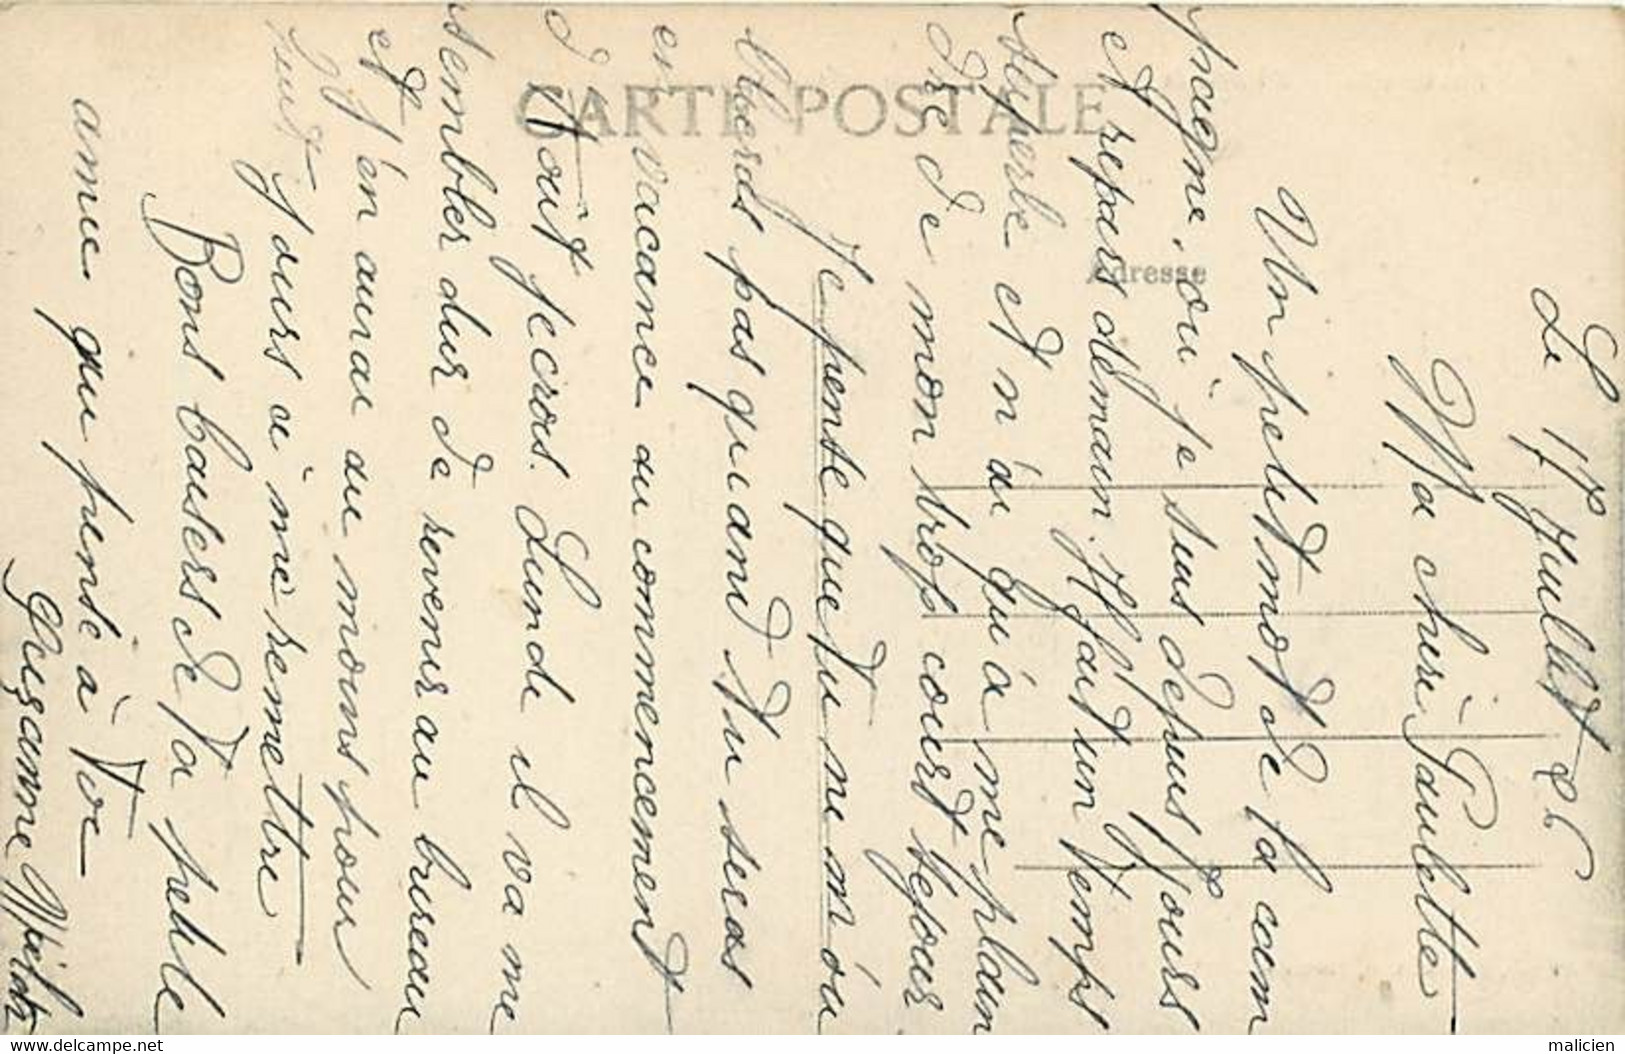 CARTE POSTALE
Adresse
Le 17 Juillet 26
Ma chère Paulette
Un petit mot de la cam
pagne, où je suis depuis 8 jours
et repars demain. Il fait un temps
superbe et n'ai qu'à me plain
dre de mon trop court séjour
Je pense que tu ne m'ou
blieras pas quand tu seras
en vacance au commencement
d'Août je crois. Lundi il va me
sembler dur de revenir au bureau
et j'en aurai au moins pour
huit jours à me remettre
Bons baisers de ta petite
amie qui pense à toi
Suzanne
www.delcampe.net
malicien